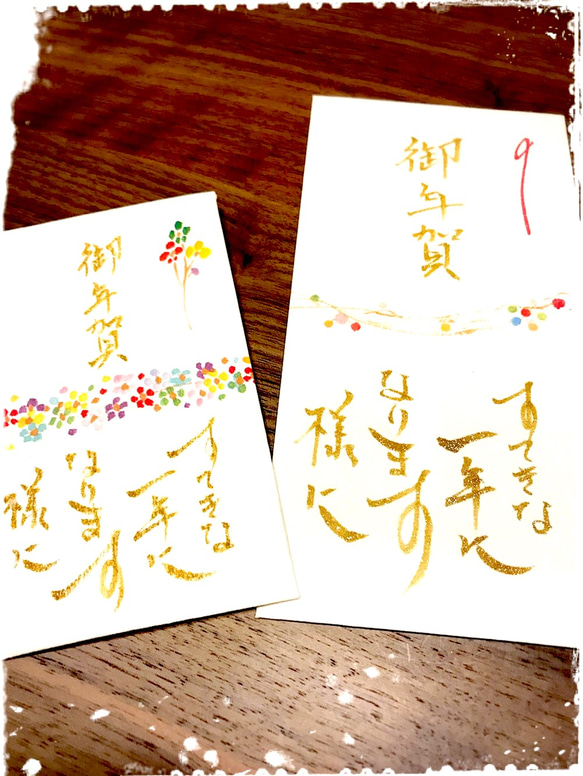 御年賀
すてきな
一年に
なります
様に
御年賀
すてきな
一年に
なります
様に